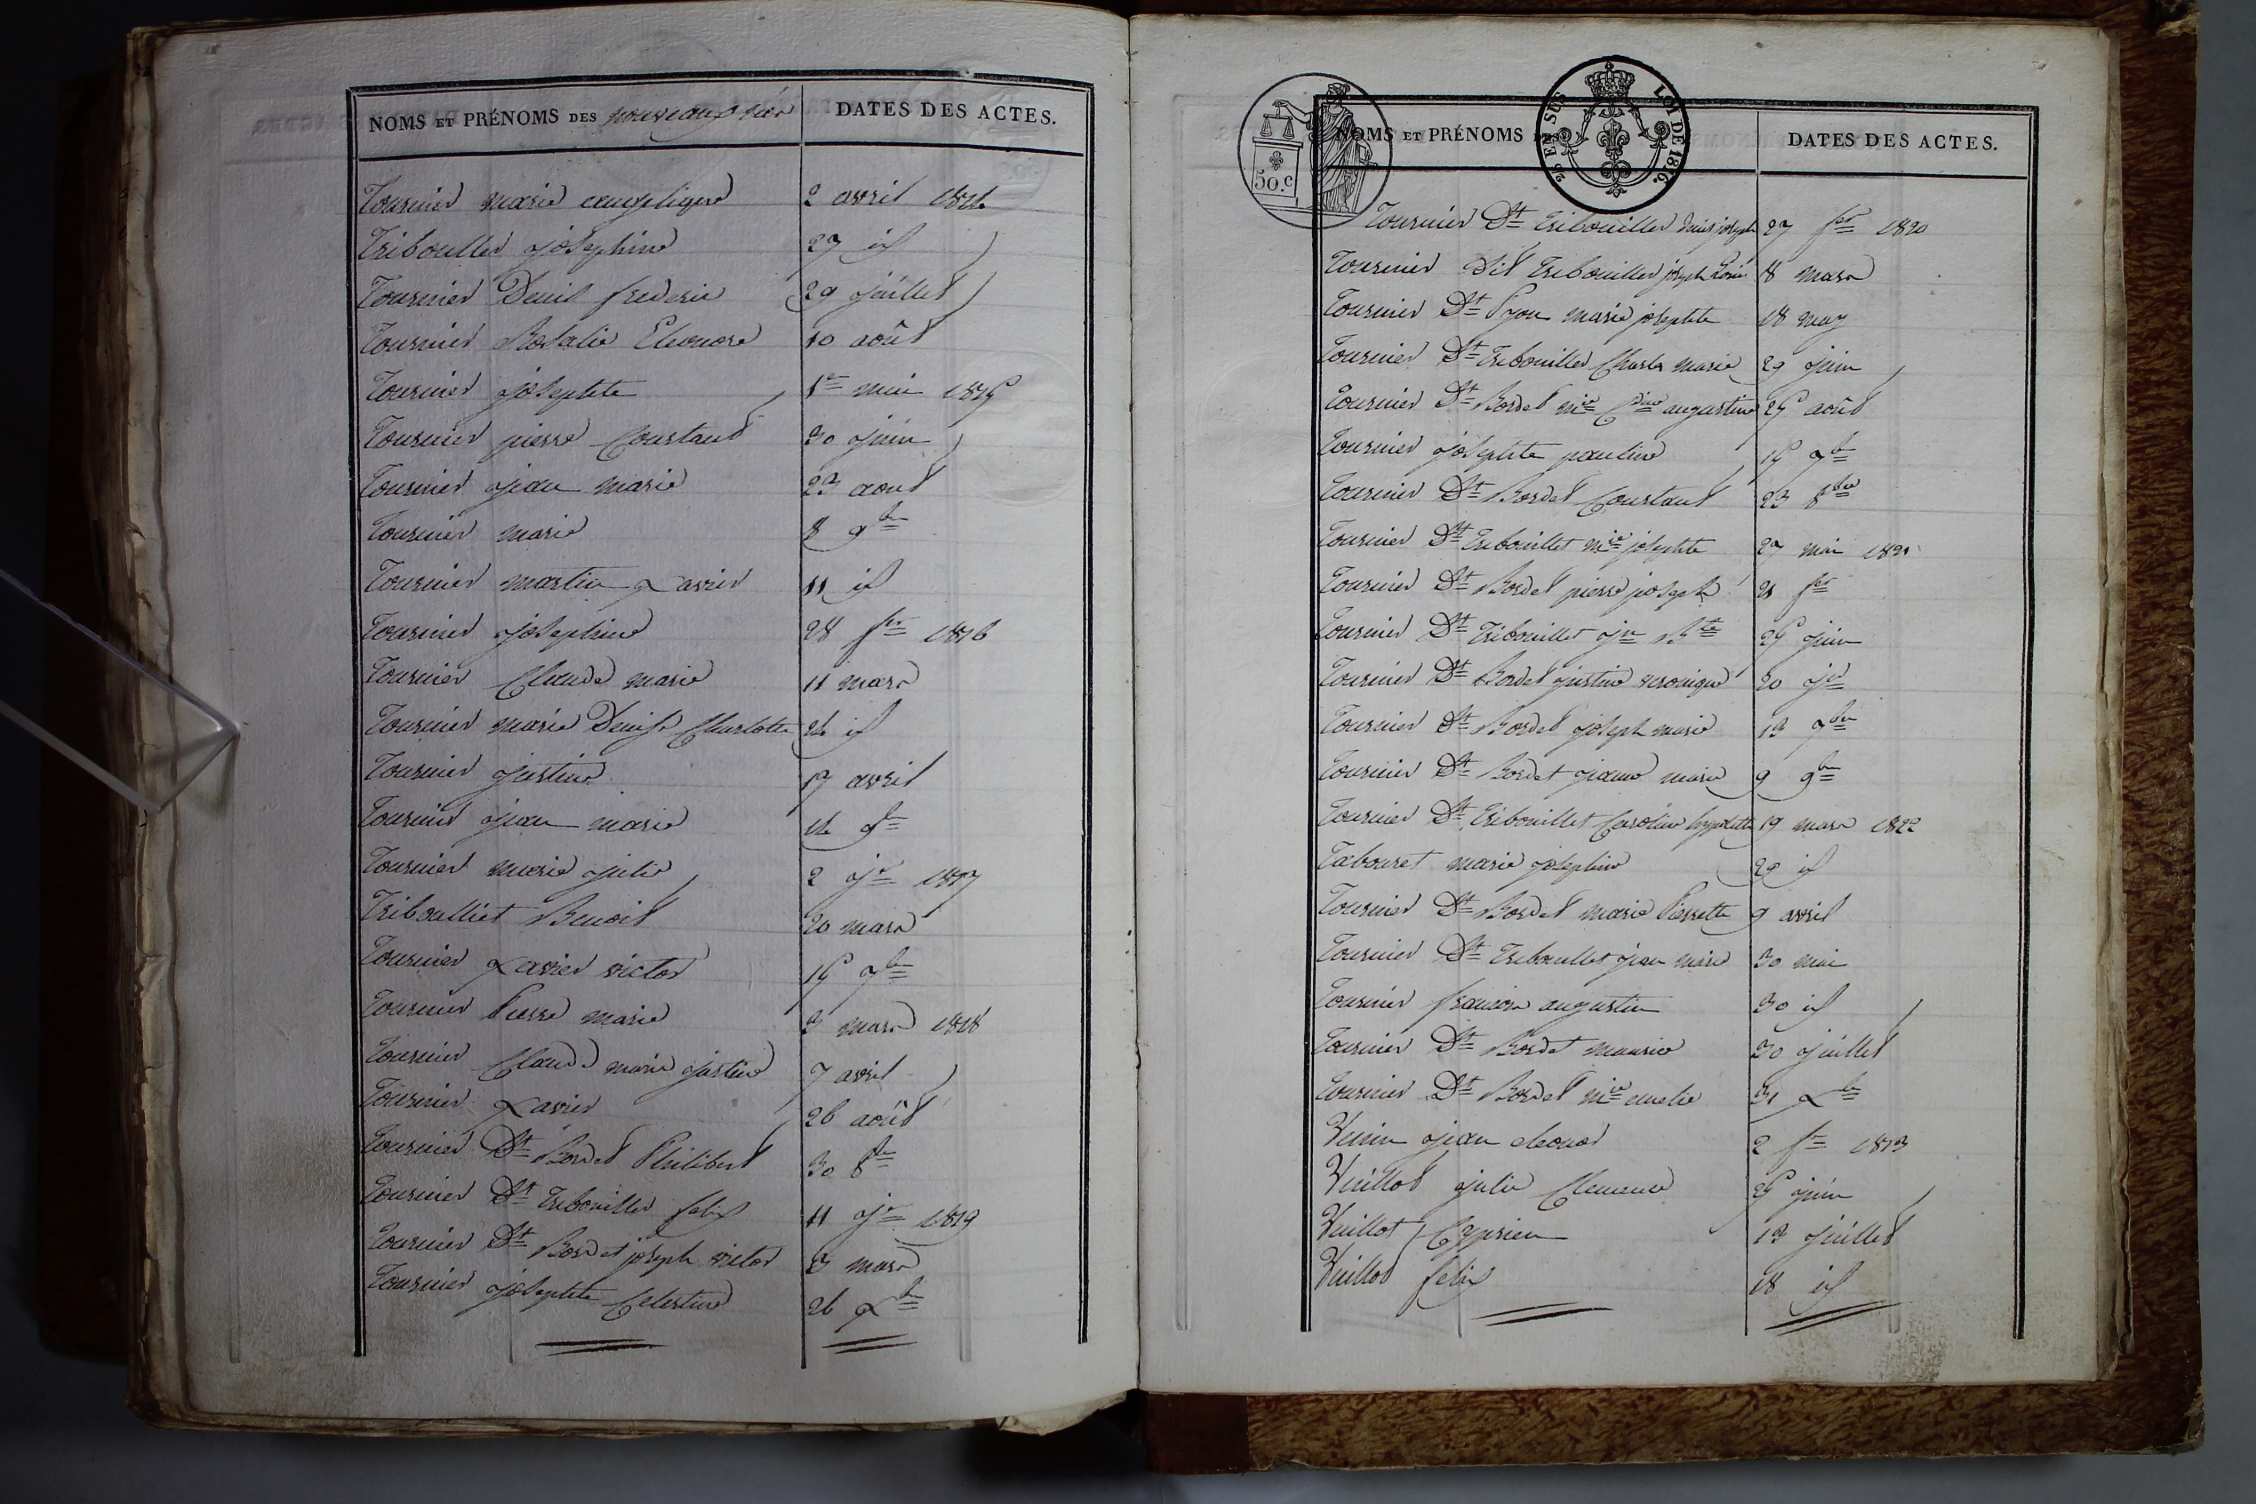 NOMS ET PRÉNOMS DES nouveaux nés DATES DES ACTES.
Tournier marie angelique 2 avril 1814
Tribouillet josephine 27 id
Tournier Denis frederic 29 juillet
Tournier Rosalie Eleonore 10 août
Tournier josephte 1er mai 1815
Tournier pierre Constant 20 juin
Tournier jean marie 23 aout
Tournier marie 8 9bre
Tournier martin Xavier 11 id
Tournier josephine 28 fer 1816
Tournier Claude marie 11 mars
Tournier marie Denise Charlotte 24 id
Tournier justine 17 avril
Tournier jean marie 14 9bre
Tournier marie julie 2 jer 1817
Triboulliet Benoit 20 mars
Tournier Xavier victor 15 7bre
Tournier Pierre marie 3 mars 1818
Tournier Claude marie justin 7 avril
Tournier Xavier 26 août
Tournier Dt Bordet Philibert 30 8bre
Tournier Dt Tribouillet felix 11 jer 1819
Tournier Dt Bordet joseph victor 3 mars
Tournier josephte Celestine 26 Xbre
50.C
2/ EN SUS LOI DE 1816.
NOMS ET PRÉNOMS DES DATES DES ACTES.
Tournier Dt Tribouillet Denis joseph 27 fer 1820
Tournier dit Tribouillet joseph Louis 18 mars
Tournier Dt marie josephte 18 may
Tournier Dt Tribouillet Charles marie 29 juin
Tournier Dt Bordet mie augustine 25 août
Tournier josephte pauline 15 7bre
Tournier Dt Bordet Constant 23 8bre
Tournier Dt Tribouillet mie josephte 27 1821
Tournier Dt Bordet pierre joseph 21 fer
Tournier Dt Tribouillet jn Bte 25 juin
Tournier Dt Bordet justine veronique 20 jet
Tournier Dt Bordet joseph marie 13 7bre
Tournier Dt Bordet jeanne marie 9 9bre
Tournier Dt Tribouillet Caroline hypolitte 19 mars 1822
Tabouret marie josephine 29 id
Tournier Dt Bordet marie Pierrette 9 avril
Tournier Dt Tribouillet jean marie 30 mai
Tournier françois augustin 30 id
Tournier Dt Bordet maurice 30 juillet
Tournier Dt Bordet mie emelie 31 Xbre
Vuin jean eleonor 2 fer 1813
Vuillot julie Clemence 25 juin
Vuillot Cyprien 13 juillet
Vuillot felix 18 id